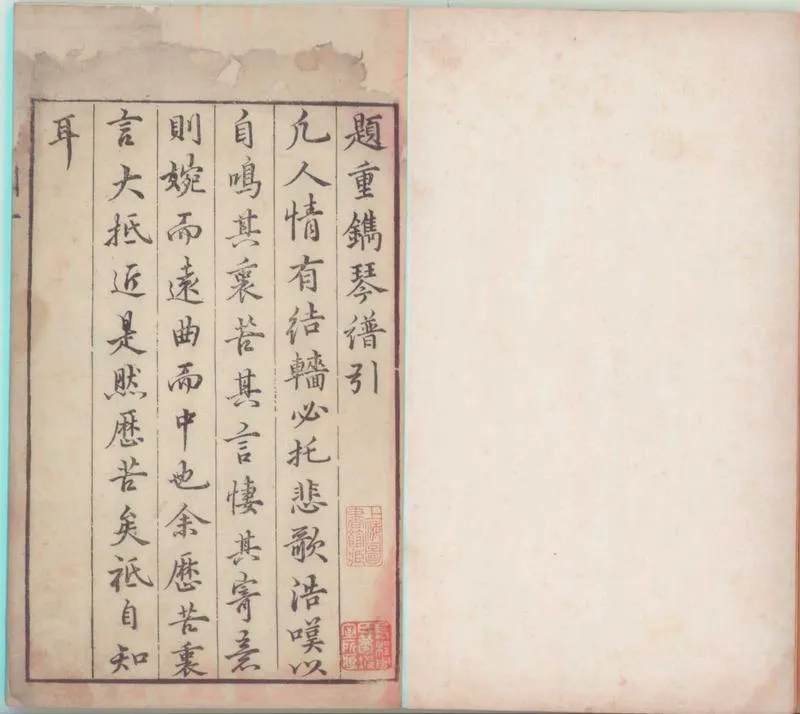 題重鐫琴譜引
凡人情有結轖必托悲歌浩嘆以
自鳴其裏苦其言悽其寄意
則婉而遠曲而中也余歷苦裏
言大抵近是然歷苦矣祗自知
耳
上海圖書館藏